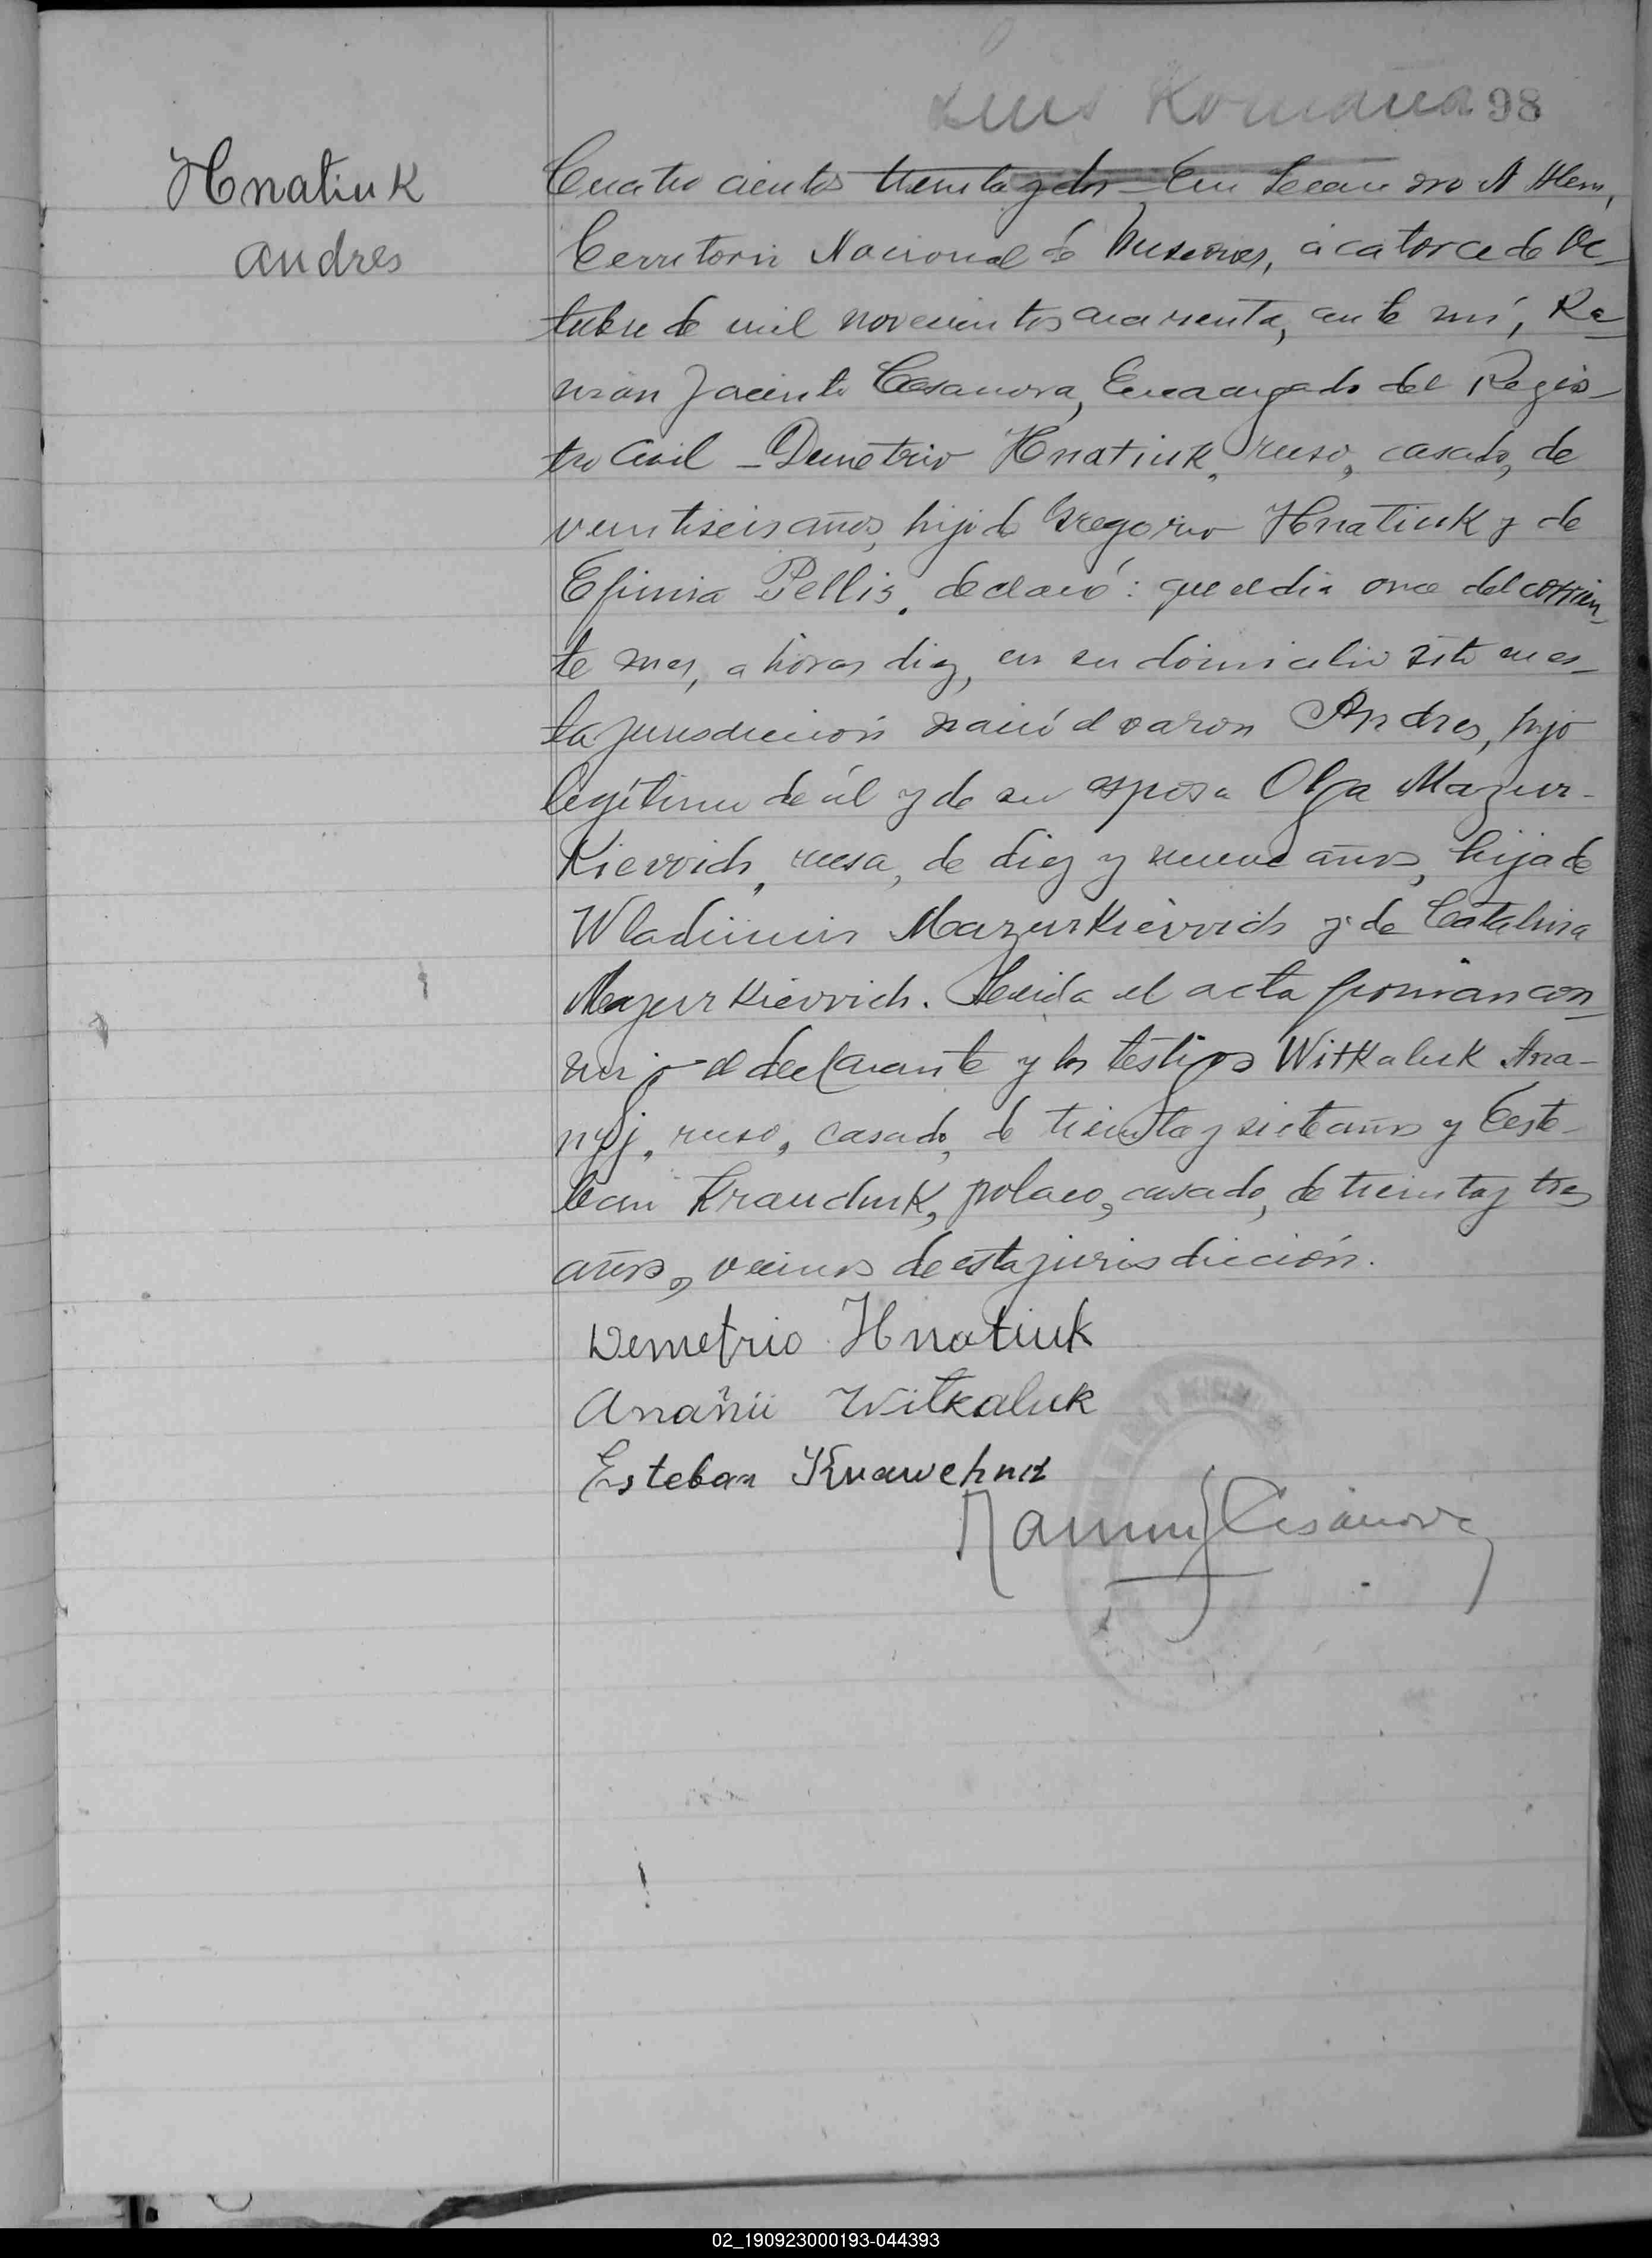 Luis Romaña 98
Hnatiuk
Andres
Cuatro cientos treinta y dos - En Leandro N Alem,
Territorio Nacional de Misiones, á catorce de Oc-
tubre de mil novecientos cuarenta, ante mí, Ra-
món Jacinto Casanova, Encargado del Regis-
tro Civil - Demetrio Hnatiuk, ruso, casado, de
veintiseis años, hijo de Gregorio Hnatiuk y de
Efimia Pellis, declaró: que el dia once del corrien-
te mes, a horas diez, en su domicilio sito en es-
ta jurisdiccion nació el varon Andres, hijo
legítimo de él y de su esposa Olga Mazur-
Kievvich, rusa, de diez y nueve años, hija de
Wladimir MazurKievvich y de Catalina
MazurKievvich. Leida el acta firman con-
migo el declarante y los testigos Witkaluk Ana-
nyj, ruso, casado, de treinta y siete años y Este-
ban Krauchuk, polaco, casado, de treinta y tres
años, vecinos de esta jurisdicción.
Demetrio Hnatiuk
Anañii Witkaluk
Esteban Krawchuk
Ramón J Casanova
02_190923000193-044393